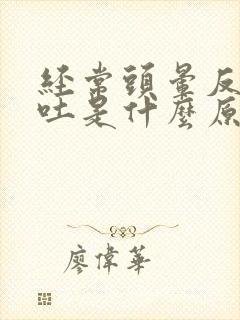 經常頭暈反
吐是什麼原
廖偉華